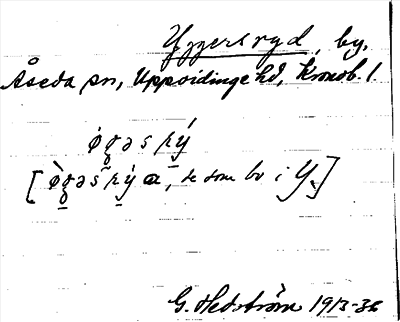 Yggersryd, by,
Åseda sn, Uppvidinge hd, Kronob. l.
ǿgəs rý
[ǿgəs rý a, de som bo i Y.]
G. Hedström 1913-36